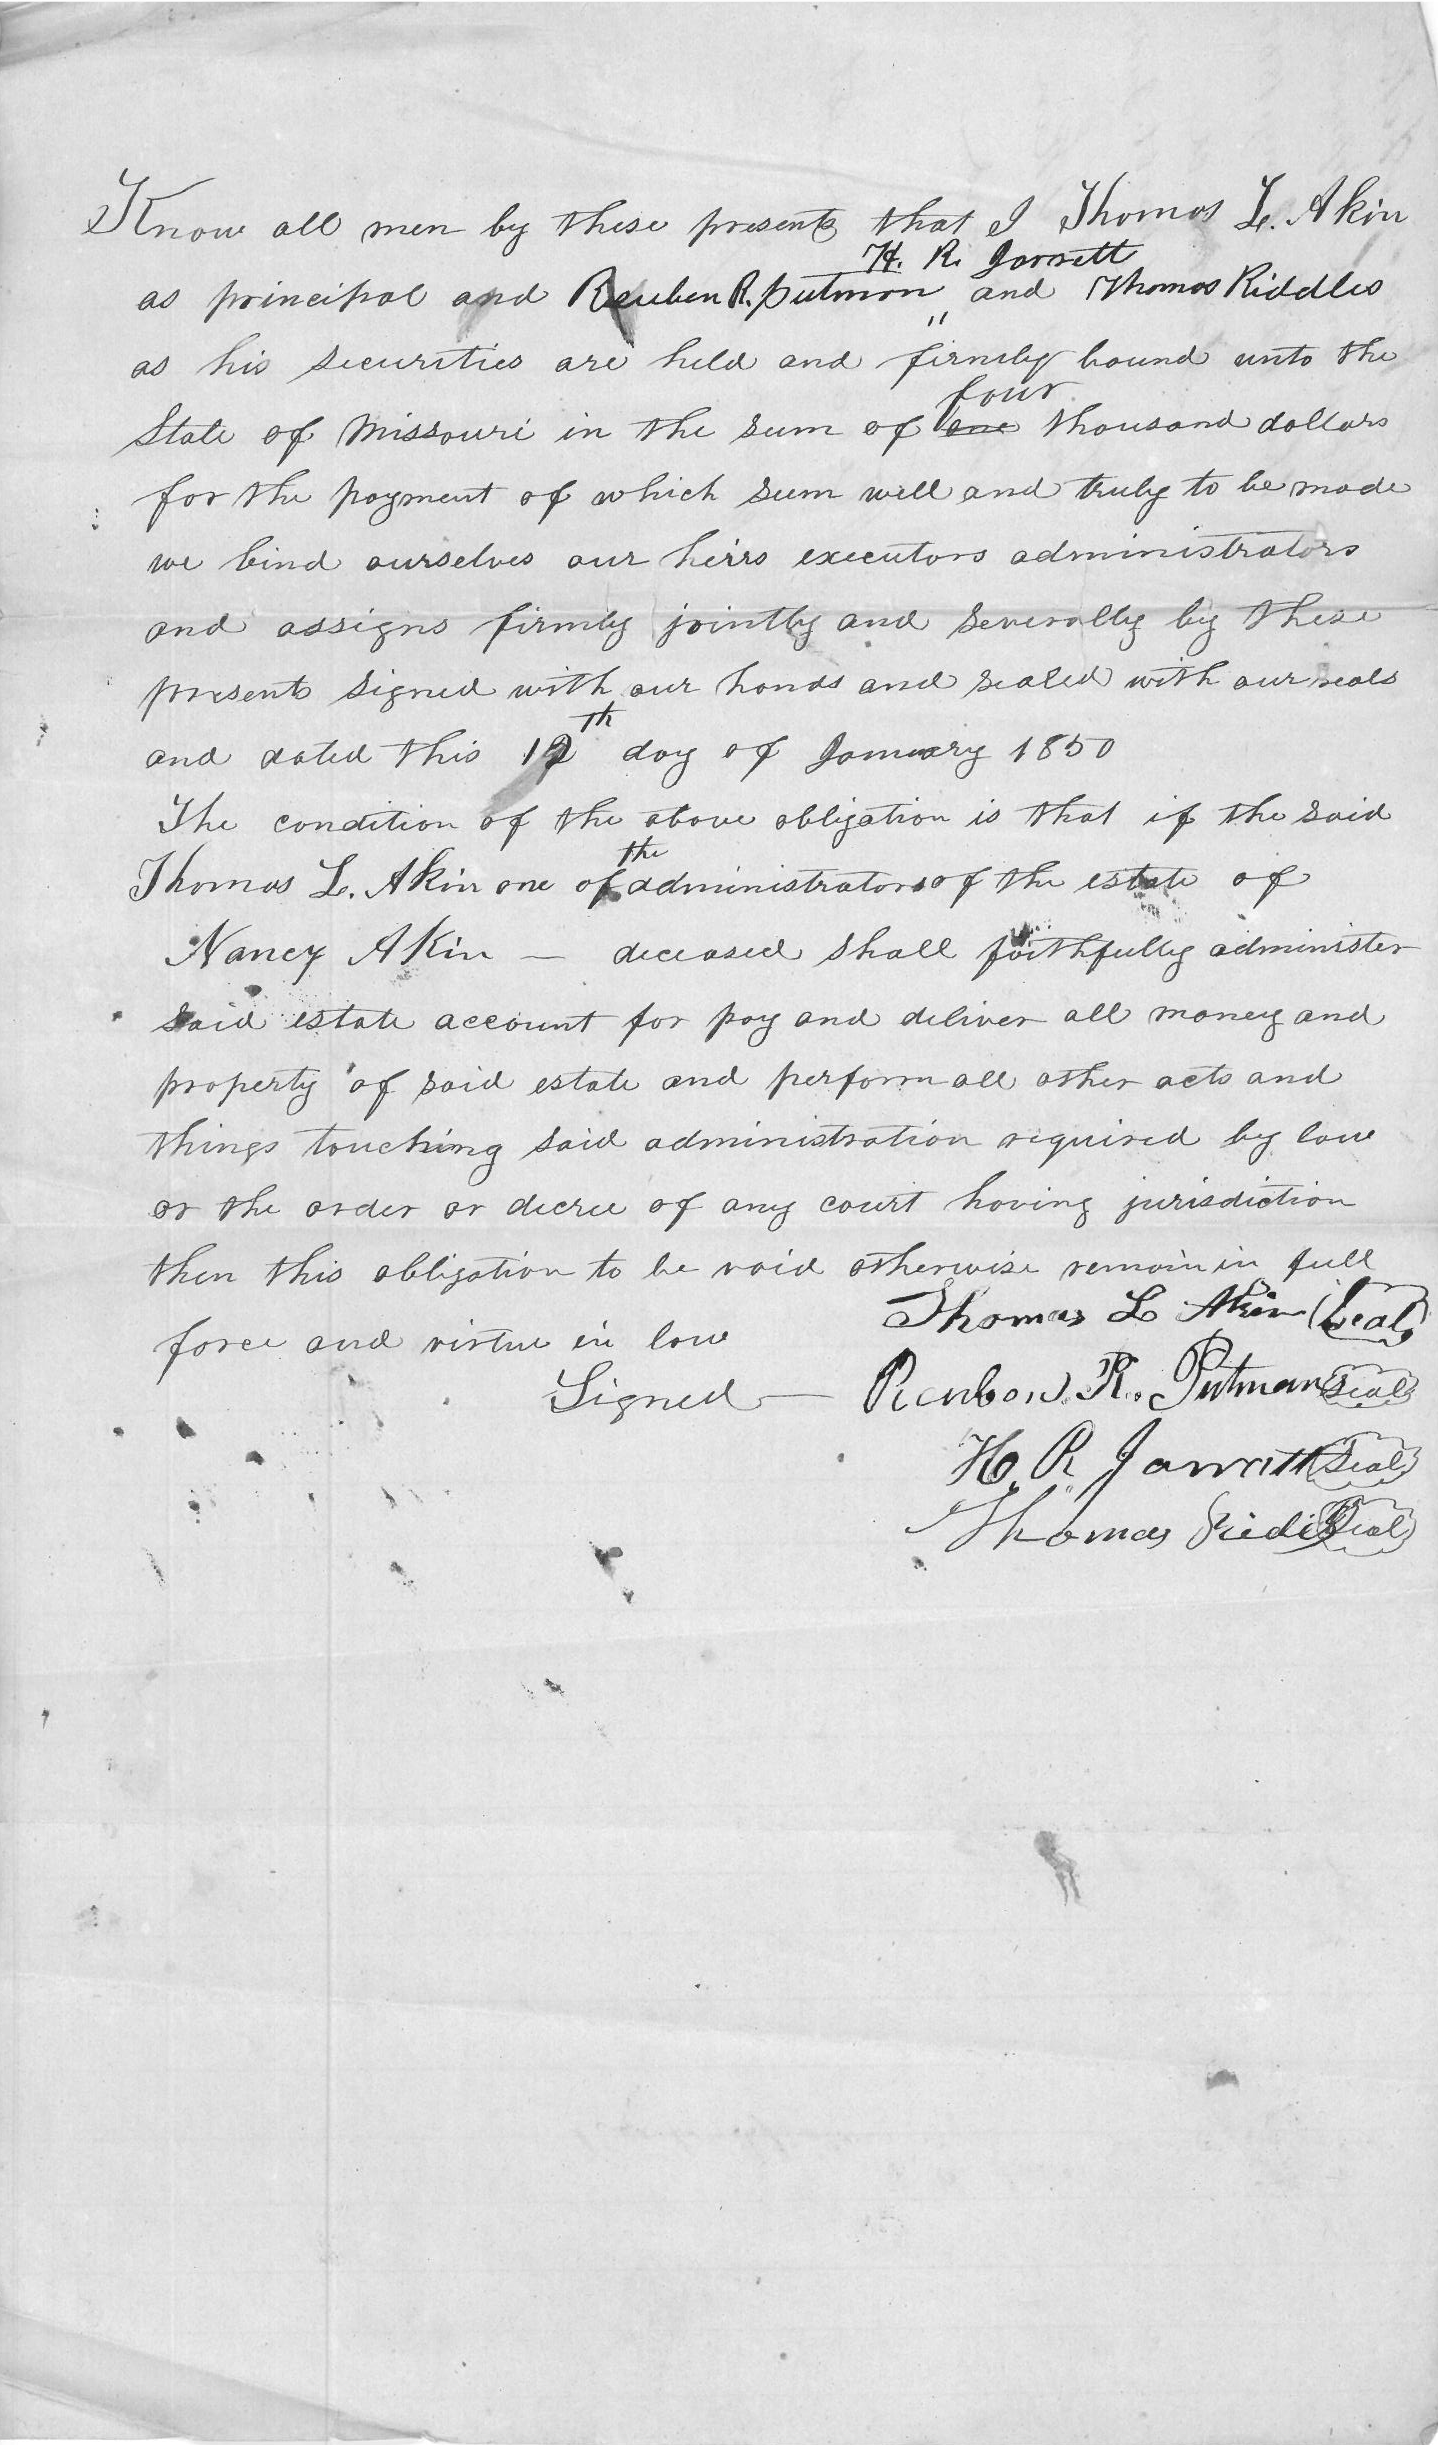 Know all men by these presents that I Thomas L. Akin
H. R. Jarrett
as principal and Reuben R. Putman " and Thomas Riddles
as his securities are held and firmly bound unto the
four
State of Missouri in the sum of one thousand dollars
for the payment of which sum well and truly to be made
we bind ourselves our heirs executors administrators
and assigns firmly jointly and severally by these
presents signed with our hands and sealed with our seals
and dated this th day of January 1850
The condition of the above obligation is that if the said
the
Thomas L. Akin one of administrators of the estate of
Nancy Akin — deceased shall faithfully administer
said estate account for pay and deliver all money and
property of said estate and perform all other acts and
things touching said administration required by law
or the order or decree of any court having jurisdiction
then this obligation to be void otherwise remain in full
force and virtue in law
Thomas L Akin Seal
Signed — Reuben R. Putman Seal
H. R. Jarrett Seal
Thomas Seal